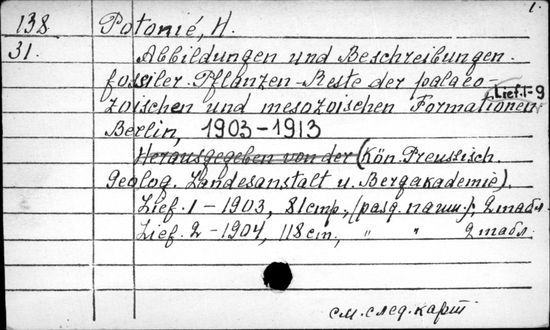 1.
138 Potonié, H.
31. Abbildungen und Beschreibungen
fossiler Pflanzen-Reste der palaeo-
zoischen und mesozoischen Formationen Lief. 1-9
Berlin, 1903-1913
Herausgegeben von der (Kön. Preussisch.
Geolog. Landesanstalt u. Bergakademie).
Lief. 1 - 1903, 81 стр., (разд. паши.); 2 табл.
Lief. 2 - 1904, 118 ст., " " 2 табл.
см. след. карт